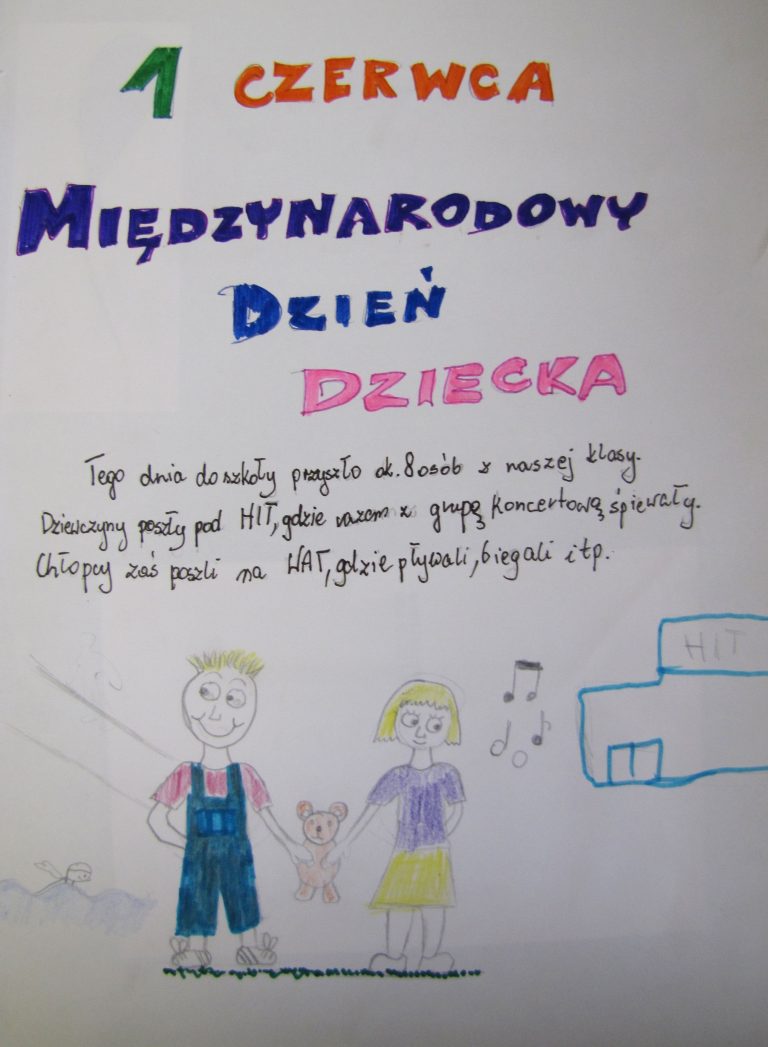 1 CZERWCA
MIĘDZYNARODOWY
DZIEŃ
DZIECKA
Tego dnia do szkoły przyszło ok. 8 osób z naszej klasy.
Dziewczyny poszły pod HIT, gdzie razem z grupą koncertową śpiewały.
Chłopcy zaś poszli na WAT, gdzie pływali, biegali itp.
HIT